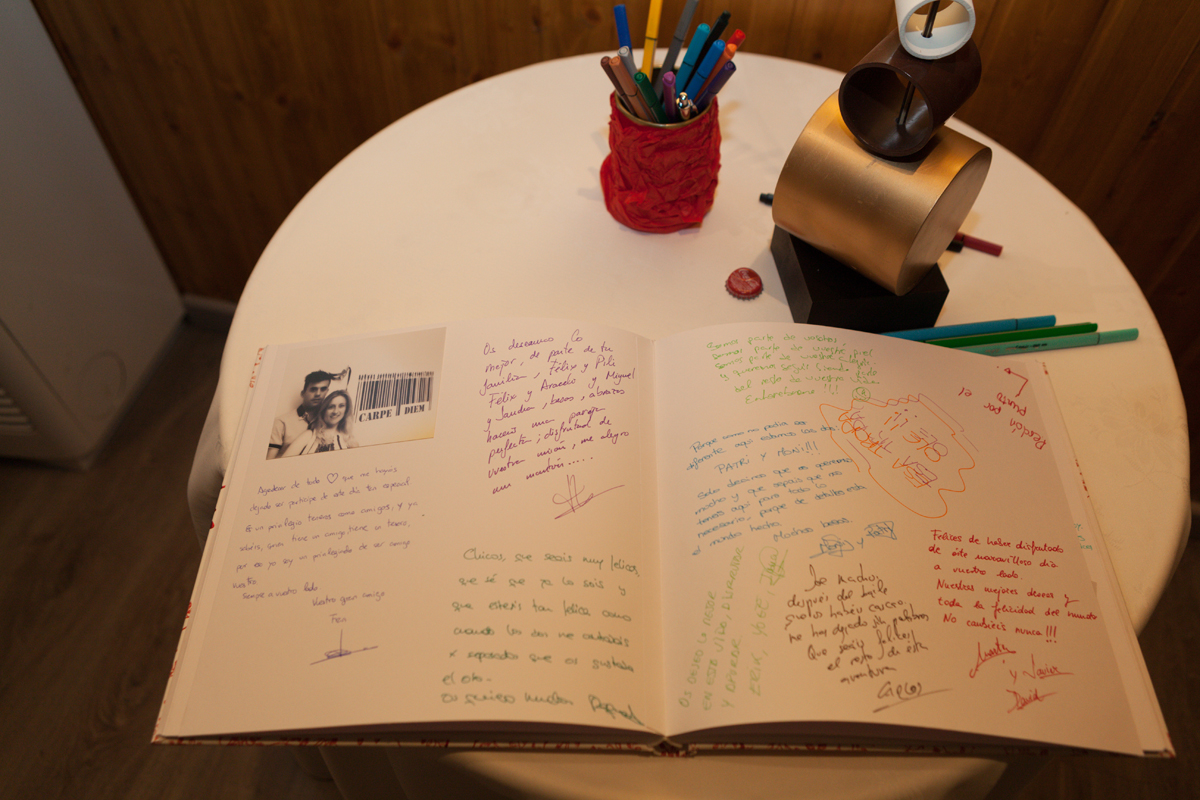 CARPE DIEM
Agradecer de todo ♡ que me hayáis
dejado ser partícipe de este día tan especial
Es un privilegio teneros como amigos, y ya
sabéis, quien tiene un amigo tiene un tesoro,
por eso yo soy un privilegiado de ser amigo
vuestro.
Siempre a vuestro lado
Vuestro gran amigo
Fran
Os deseamos lo
mejor, de parte de tu
familia, Félix y Pili
Félix y Araceli y Miguel
y Sandra, besos, abrazos
haceis una pareja
perfecta; disfrutad de
vuestra unión, me alegro
un montón.....
Chicos, que seais muy felices,
que sé que ya lo sois y
que esteis tan felices como
cuando los dos me contabais
x separados que os gustaba
el otro.
Os quiero mucho Raquel
Somos parte de vosotros,
somos parte de vuestro
somos parte de vuestra
y queremos seguir siendo parte
del resto de vuestra
Enhorabuena!!!
Perdón por el
punto
Porque como no podía ser
diferente aquí estamos los dos
PATRI y MONI!!!
Solo deciros que os queremos
mucho y que sepáis que nos
tenéis aquí para todo lo
necesario, porque de detalles esta
el mundo hecho
Muchos besos.
y
OS DESEO LO MEJOR
EN ESTA VIDA, DISFRUTAR
Y
Joe machos,
después del baile
que os habéis
me has dejado sin palabras
Que seáis felices
el resto de esta
aventura
Carlos
Felices de haber disfrutado
de éste maravilloso día
a vuestro lado.
Nuestros mejores deseos y
toda la felicidad del mundo
No cambiéis nunca!!!
y Javier
David